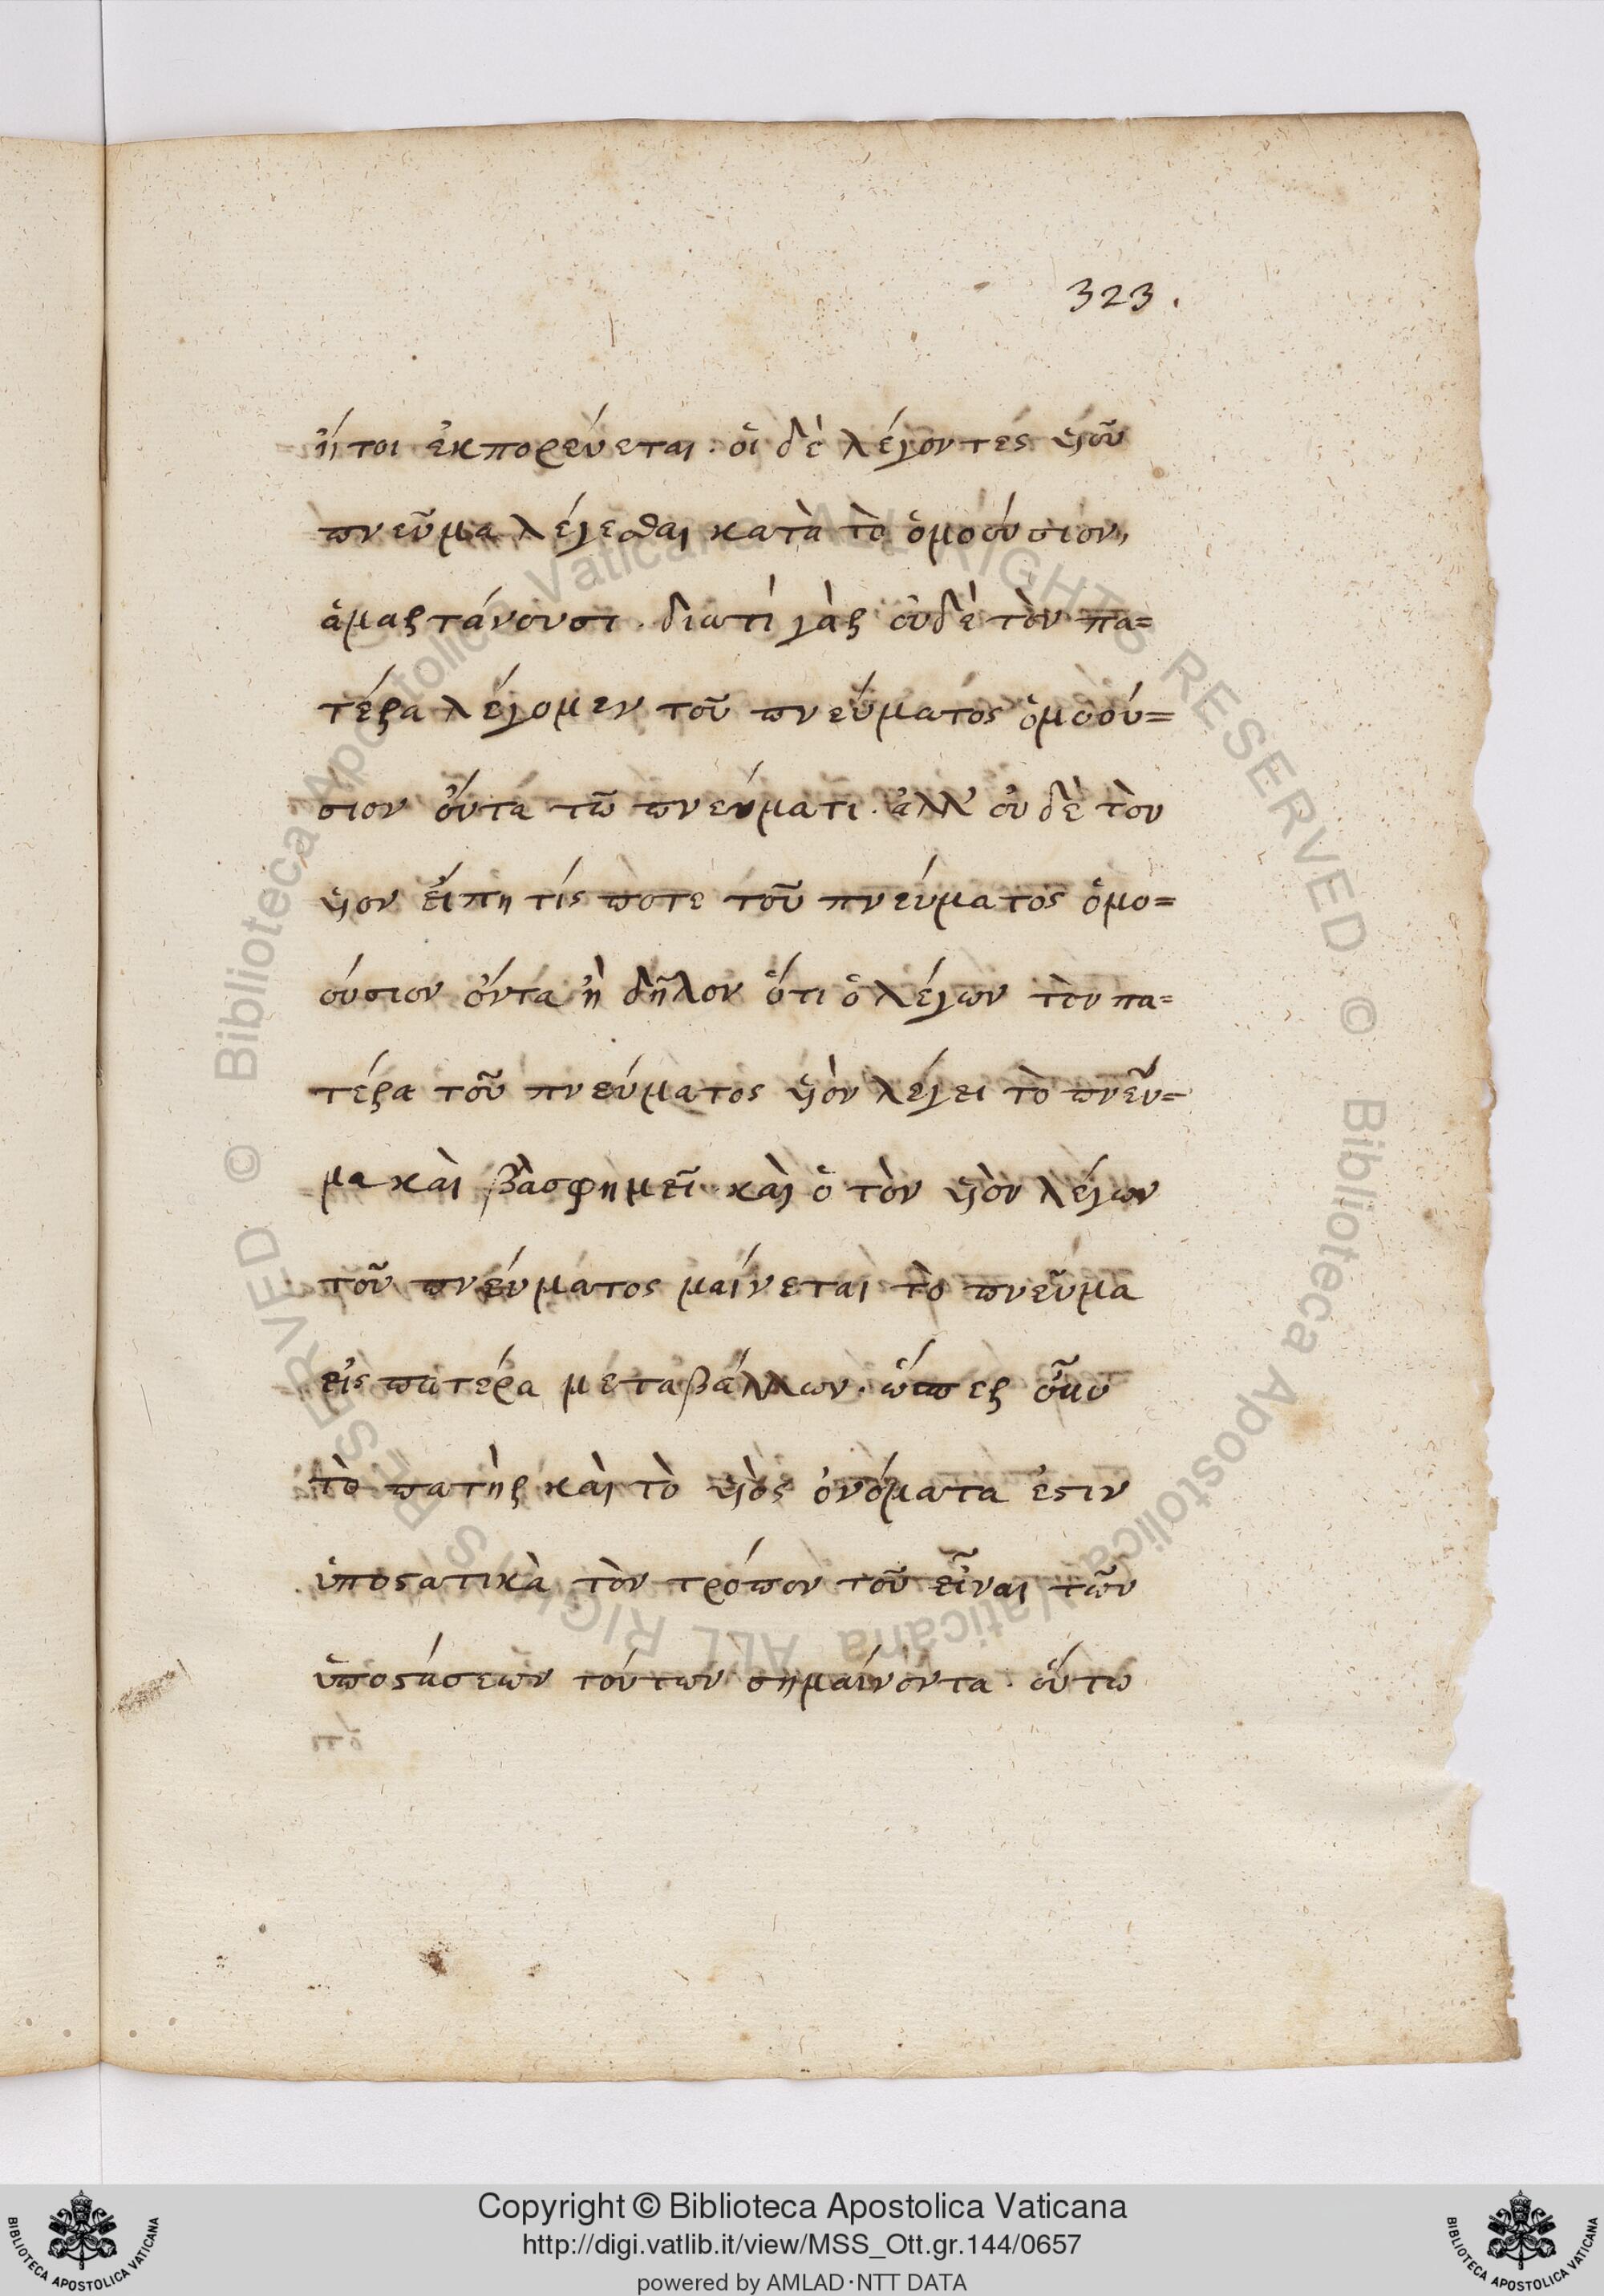 323.
ἤτοι ἐκπορεύεται. οἱ δὲ λέγοντες ὑιοῦ
πνεῦμα λέγεσθαι κατὰ τὸ ὁμοούσιον,
ἁμαρτάνουσι. διατὶ γὰρ οὐδὲ τὸν πα=
τέρα λέγομεν τοῦ πνεύματος ὁμοού=
σιον ὄντα τῶ πνεύματι. ἀλλ' οὐδὲ τὸν
ὑιον εἴπη τίς πὸτε τοῦ πνεύματος ὁμο=
ούσιον ὄντα ἢ δῆλον ὅτι ὁ λέγων τὸν πα=
τέρα τοῦ πνεύματος ὑιὸν λέγει τὸ πνεῦ=
μα καὶ βλασφημεῖ. καὶ ὁ τὸν ὑιὸν λέγων
τοῦ πνεύματος μαίνεται τὸ πνεῦμα
εἰς πατέρα μεταβάλλων. ὥσπερ
τὸ πατὴρ καὶ τὸ ὑιὸς ὀνόματα ἐστιν
ὑποστατικὰ τὸν τρόπον τοῦ εἶναι τῶν
ὑποστάσεων τούτων σημαίνοντα. οὕτω
Copyright © Biblioteca Apostolica Vaticana
http://digi.vatlib.it/view/MSS_Ott.gr.144/0657
powered by AMLAD·NTT DATA
BIBLIOTECA APOSTOLICA VATICANA
BIBLIOTECA APOSTOLICA VATICANA
© Biblioteca Apostolica Vaticana ALL RIGHTS RESERVED © Biblioteca Apostolica Vaticana ALL RIGHTS RESERVED